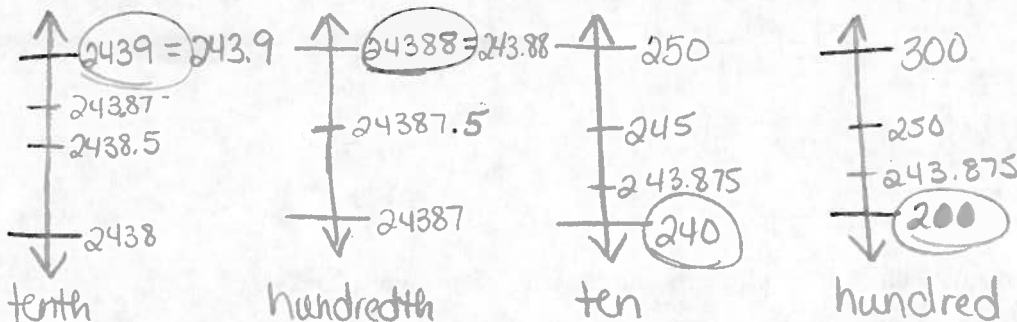 2439 = 243.9
243.87
2438.5
2438
tenth
24388 = 243.88
24387.5
24387
hundredth
250
245
243.875
240
ten
300
250
243.875
200
hundred